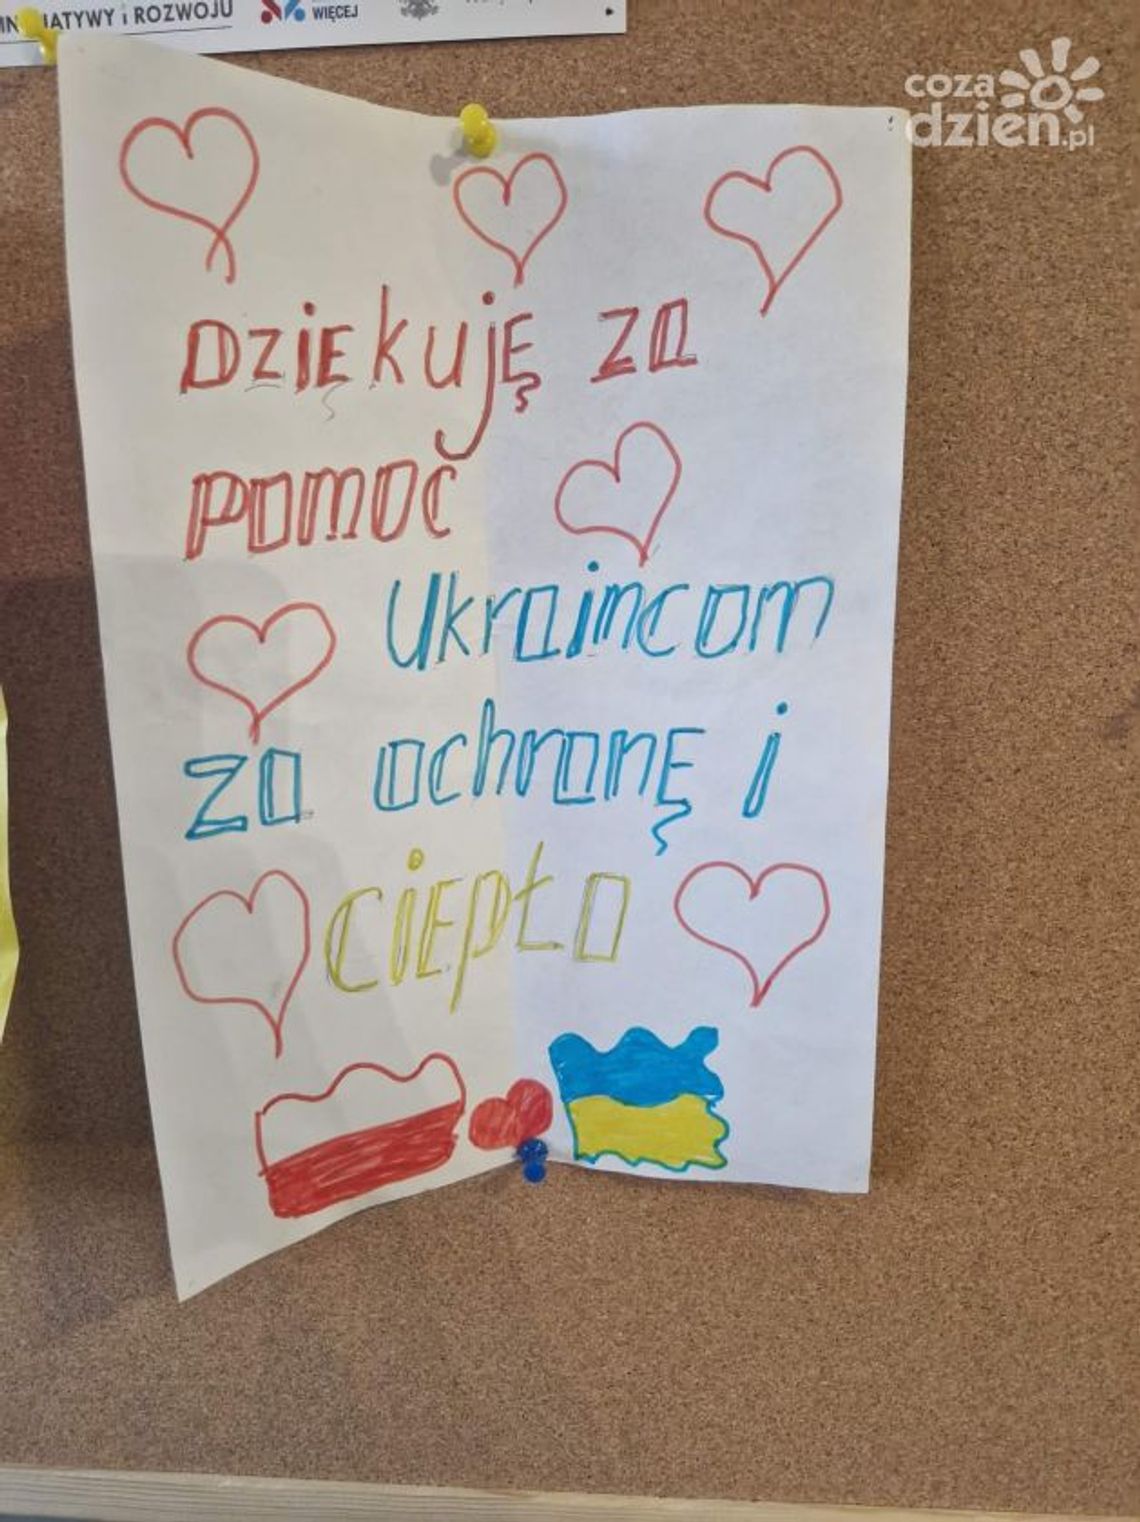 JATYWY i ROZWOJU
WIĘCEJ
coza
dzien.pl
Dziękuję za
pomoč
Ukraincom
za ochronę i
ciepło